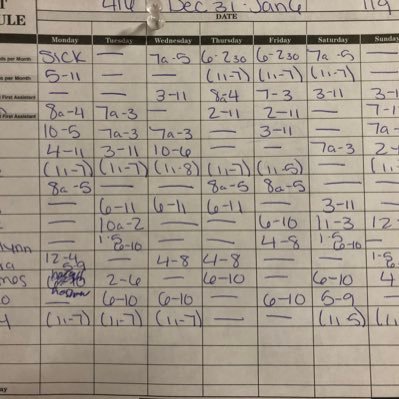 416 Dec 31-Jan 6 119
DATE
ULE
Monday Tuesday Wednesday Thursday Friday Saturday Sunday
ds per Month SICK — 7a-5 6-230 6-230 7a-5
ds per Month 5-11 — — (11-7) (11-7) (11-7) —
First Assistant — — 3-11 8a-4 7-3 3-11 3-1
First Assistant 8a-4 7a-3 — 2-11 2-11 — 7-1
10-5 7a-3 7a-3 — 3-11 — 7a-
4-11 3-11 10-6 — — 7a-3 2-
(11-7) (11-7) (11-8) (11-7) (11-5) — (11-
8a-5 — — 8a-5 8a-5 — —
— 6-11 6-11 6-11 — 3-11 —
— 10a-2 — — 6-10 11-3 12-
lynn — 1-5 6-10 — — 4-8 1-5 6-10 —
12-4 5-9 — 4-8 4-8 — — 1-5
mes 2-6 — 6-10 — 6-10 4
o — 6-10 6-10 — 6-10 5-9 —
(11-7) (11-7) (11-7) — — (11-5) (11-
ay